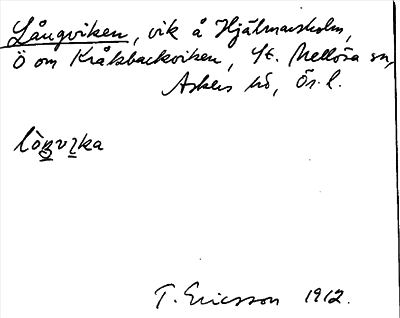 Långviken, vik å Hjälmarsholm,
Ö om Kråkbackviken, St. Mellösa sn,
Askers hd, Ör. l.
T. Ericsson 1912.